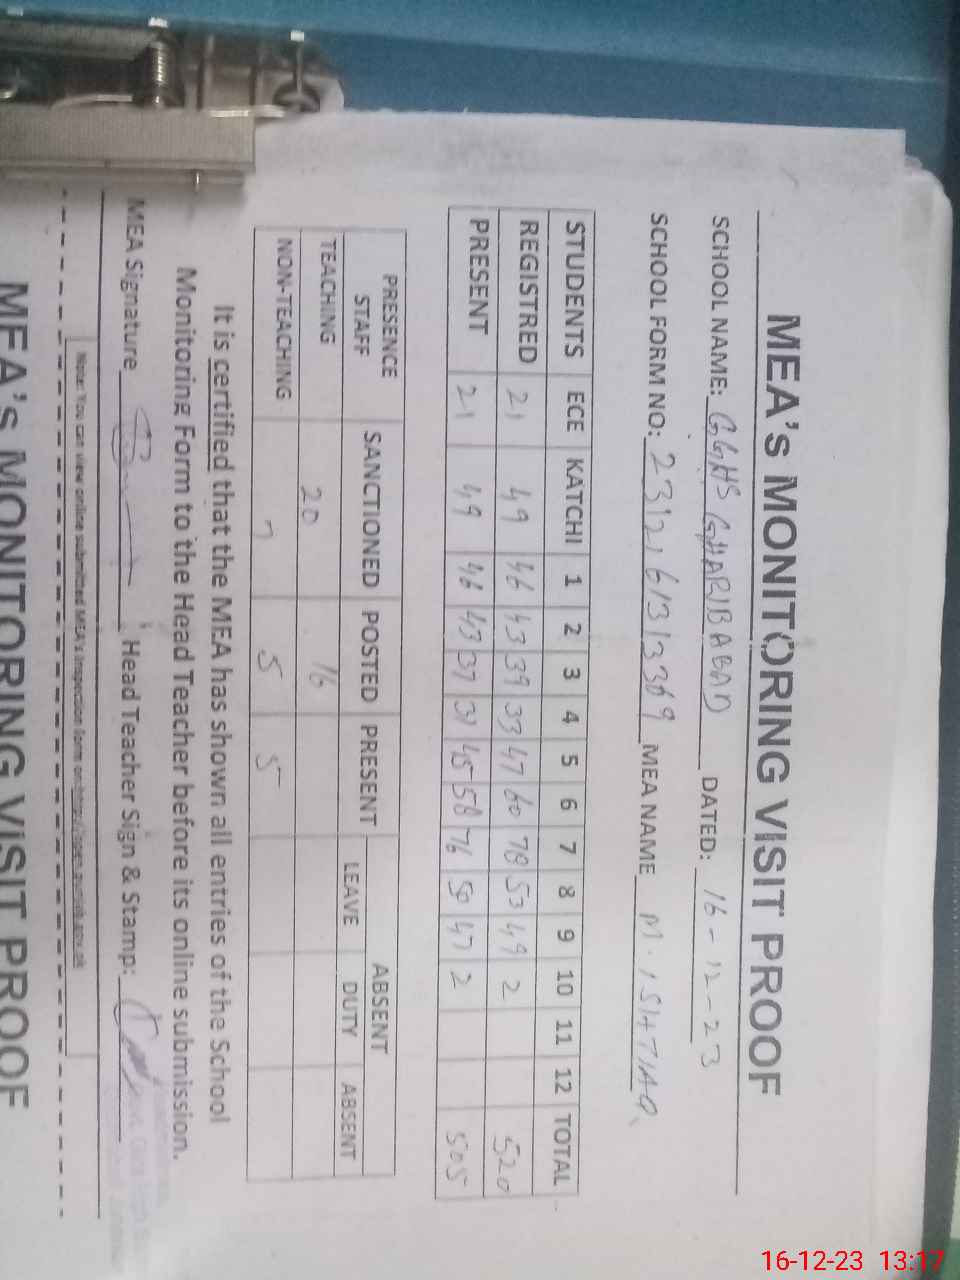 MEA's MONITORING VISIT PROOF
SCHOOL NAME: GGHS GHARIBABAD DATED: 16-12-23
SCHOOL FORM NO: 23121613131369 MEA NAME M. ISHTIAQ
STUDENTS ECE KATCHI 1 2 3 4 5 6 7 8 9 10 11 12 TOTAL
REGISTRED 21 49 46 43 39 33 47 60 78 53 49 2 520
PRESENT 21 49 46 43 37 31 45 58 76 50 47 2 505
PRESENCE ABSENT
STAFF SANCTIONED POSTED PRESENT LEAVE DUTY ABSENT
TEACHING 20 16
NON-TEACHING 7 5 5
It is certified that the MEA has shown all entries of the School
Monitoring Form to the Head Teacher before its online submission.
MEA Signature Head Teacher Sign & Stamp:
Note: You can view online submitted MEA's inspection form on
MEA's MONITORING VISIT PROOF
16-12-23 13:17